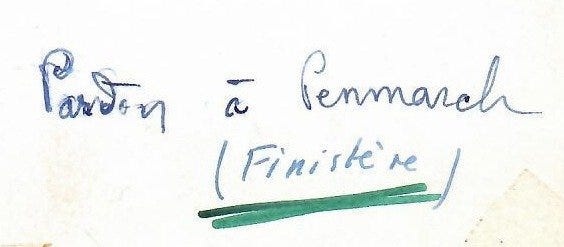 Pardon à Penmarch
(Finistère)